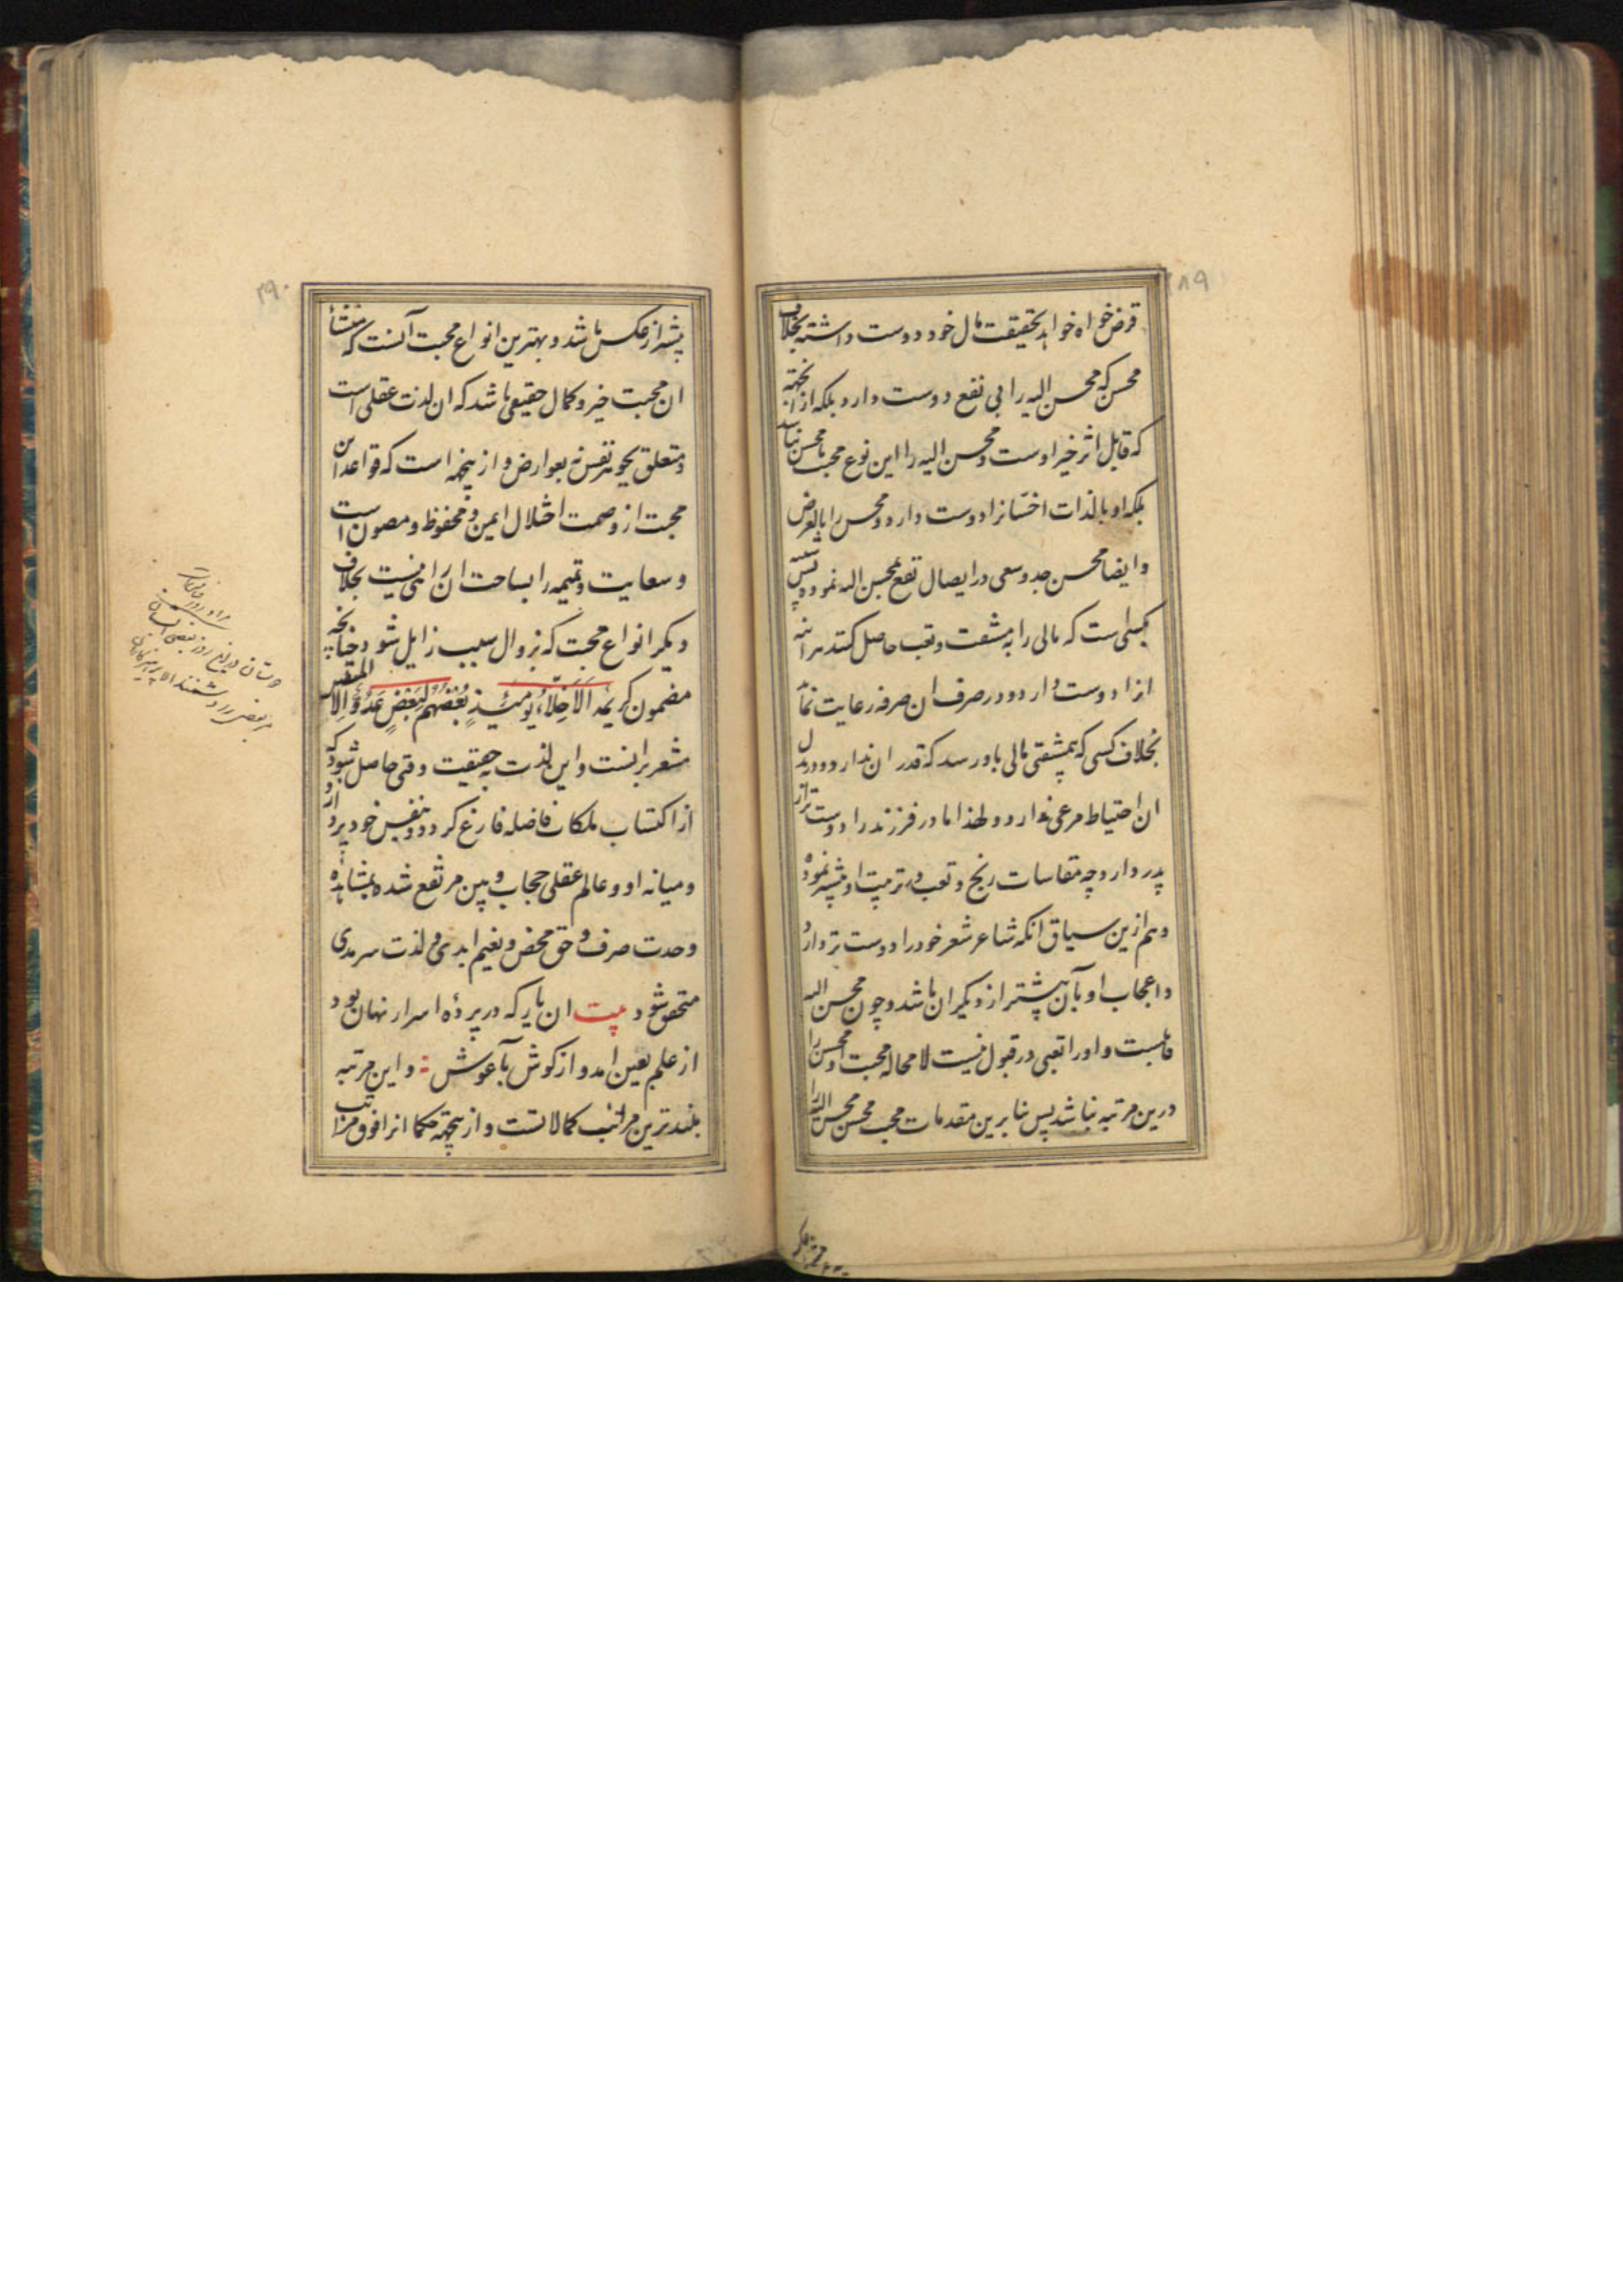 ۲۸۹
قرض خواه خواهد بحقیقت مال خود دوست داشته بخلاف
محسن که محسن الیه را بی نفع دوست دارد بلکه از انجهة
که قابل اثر خیر اوست و محسن الیه را این نوع محبت با محسن نباشد
بلکه او بالذات احسانرا دوست دارد و محسن را بالعرض
و ایضا محسن جد و سعی در ایصال نفع بمحسن الیه نموده پس
بکسی است که مالی را به مشقت و تعب حاصل کند هراینه
انرا دوست دارد و در صرف ان صرفه رعایت نماید
بخلاف کسی که بیمشقتی مالی باو رسد که قدر ان نداند و در بذل
ان احتیاط مرعی ندارد و لهذا مادر فرزند را دوست تر از
پدر دارد چه مقاسات رنج و تعب در تربیت او بیشتر نموده
و هم ازین سیاق انکه شاعر شعر خود را دوست تر دارد
و اعجاب او بآن بیشتر از دیکران باشد و چون محسن الیه
قابلست و او را تعبی در قبول نیست لا محاله محبت او محسن را
درین مرتبه نباشد پس بنا برین مقدمات محبت محسن محسن الیه را
۲۹۰
بیشتر از عکس باشد و بهترین انواع محبت آنست که منشأ
ان محبت خیر و کمال حقیقی باشد که ان لذت عقلی است
و متعلق بجوهر نفس نه بعوارض و ازینجهه است که قواعد این
محبت از وصمت اختلال ایمن و محفوظ و مصون است
و سعایت و نمیمه را بساحت ان راهی نیست بخلاف
دیکر انواع محبت که بزوال سبب زایل شود چنانچه
مضمون کریمه اَلاَخِلّاءُ یَومَئِذٍ بَعْضُهُم لِبَعْضٍ عَدُوٌّ اِلاَّ المتقین
مشعر برانست و این لذت بحقیقت وقتی حاصل شود که
از اکتساب ملکات فاضله فارغ کردد و بنفس خود پردازد
و میانه او و عالم عقلی حجاب و بین مرتفع شده بمشاهده
وحدت صرف و حق محض و نعیم ابدی و لذت سرمدی
متحقق شود بیت ان یار که در پرده اسرار نهان بود
از علم بعین امد و از کوش بآغوش و این مرتبه
بلندترین مراتب کمالاتست و ازینجهته حکما انرا فوق مراتب
دوستان در این روز بعضی